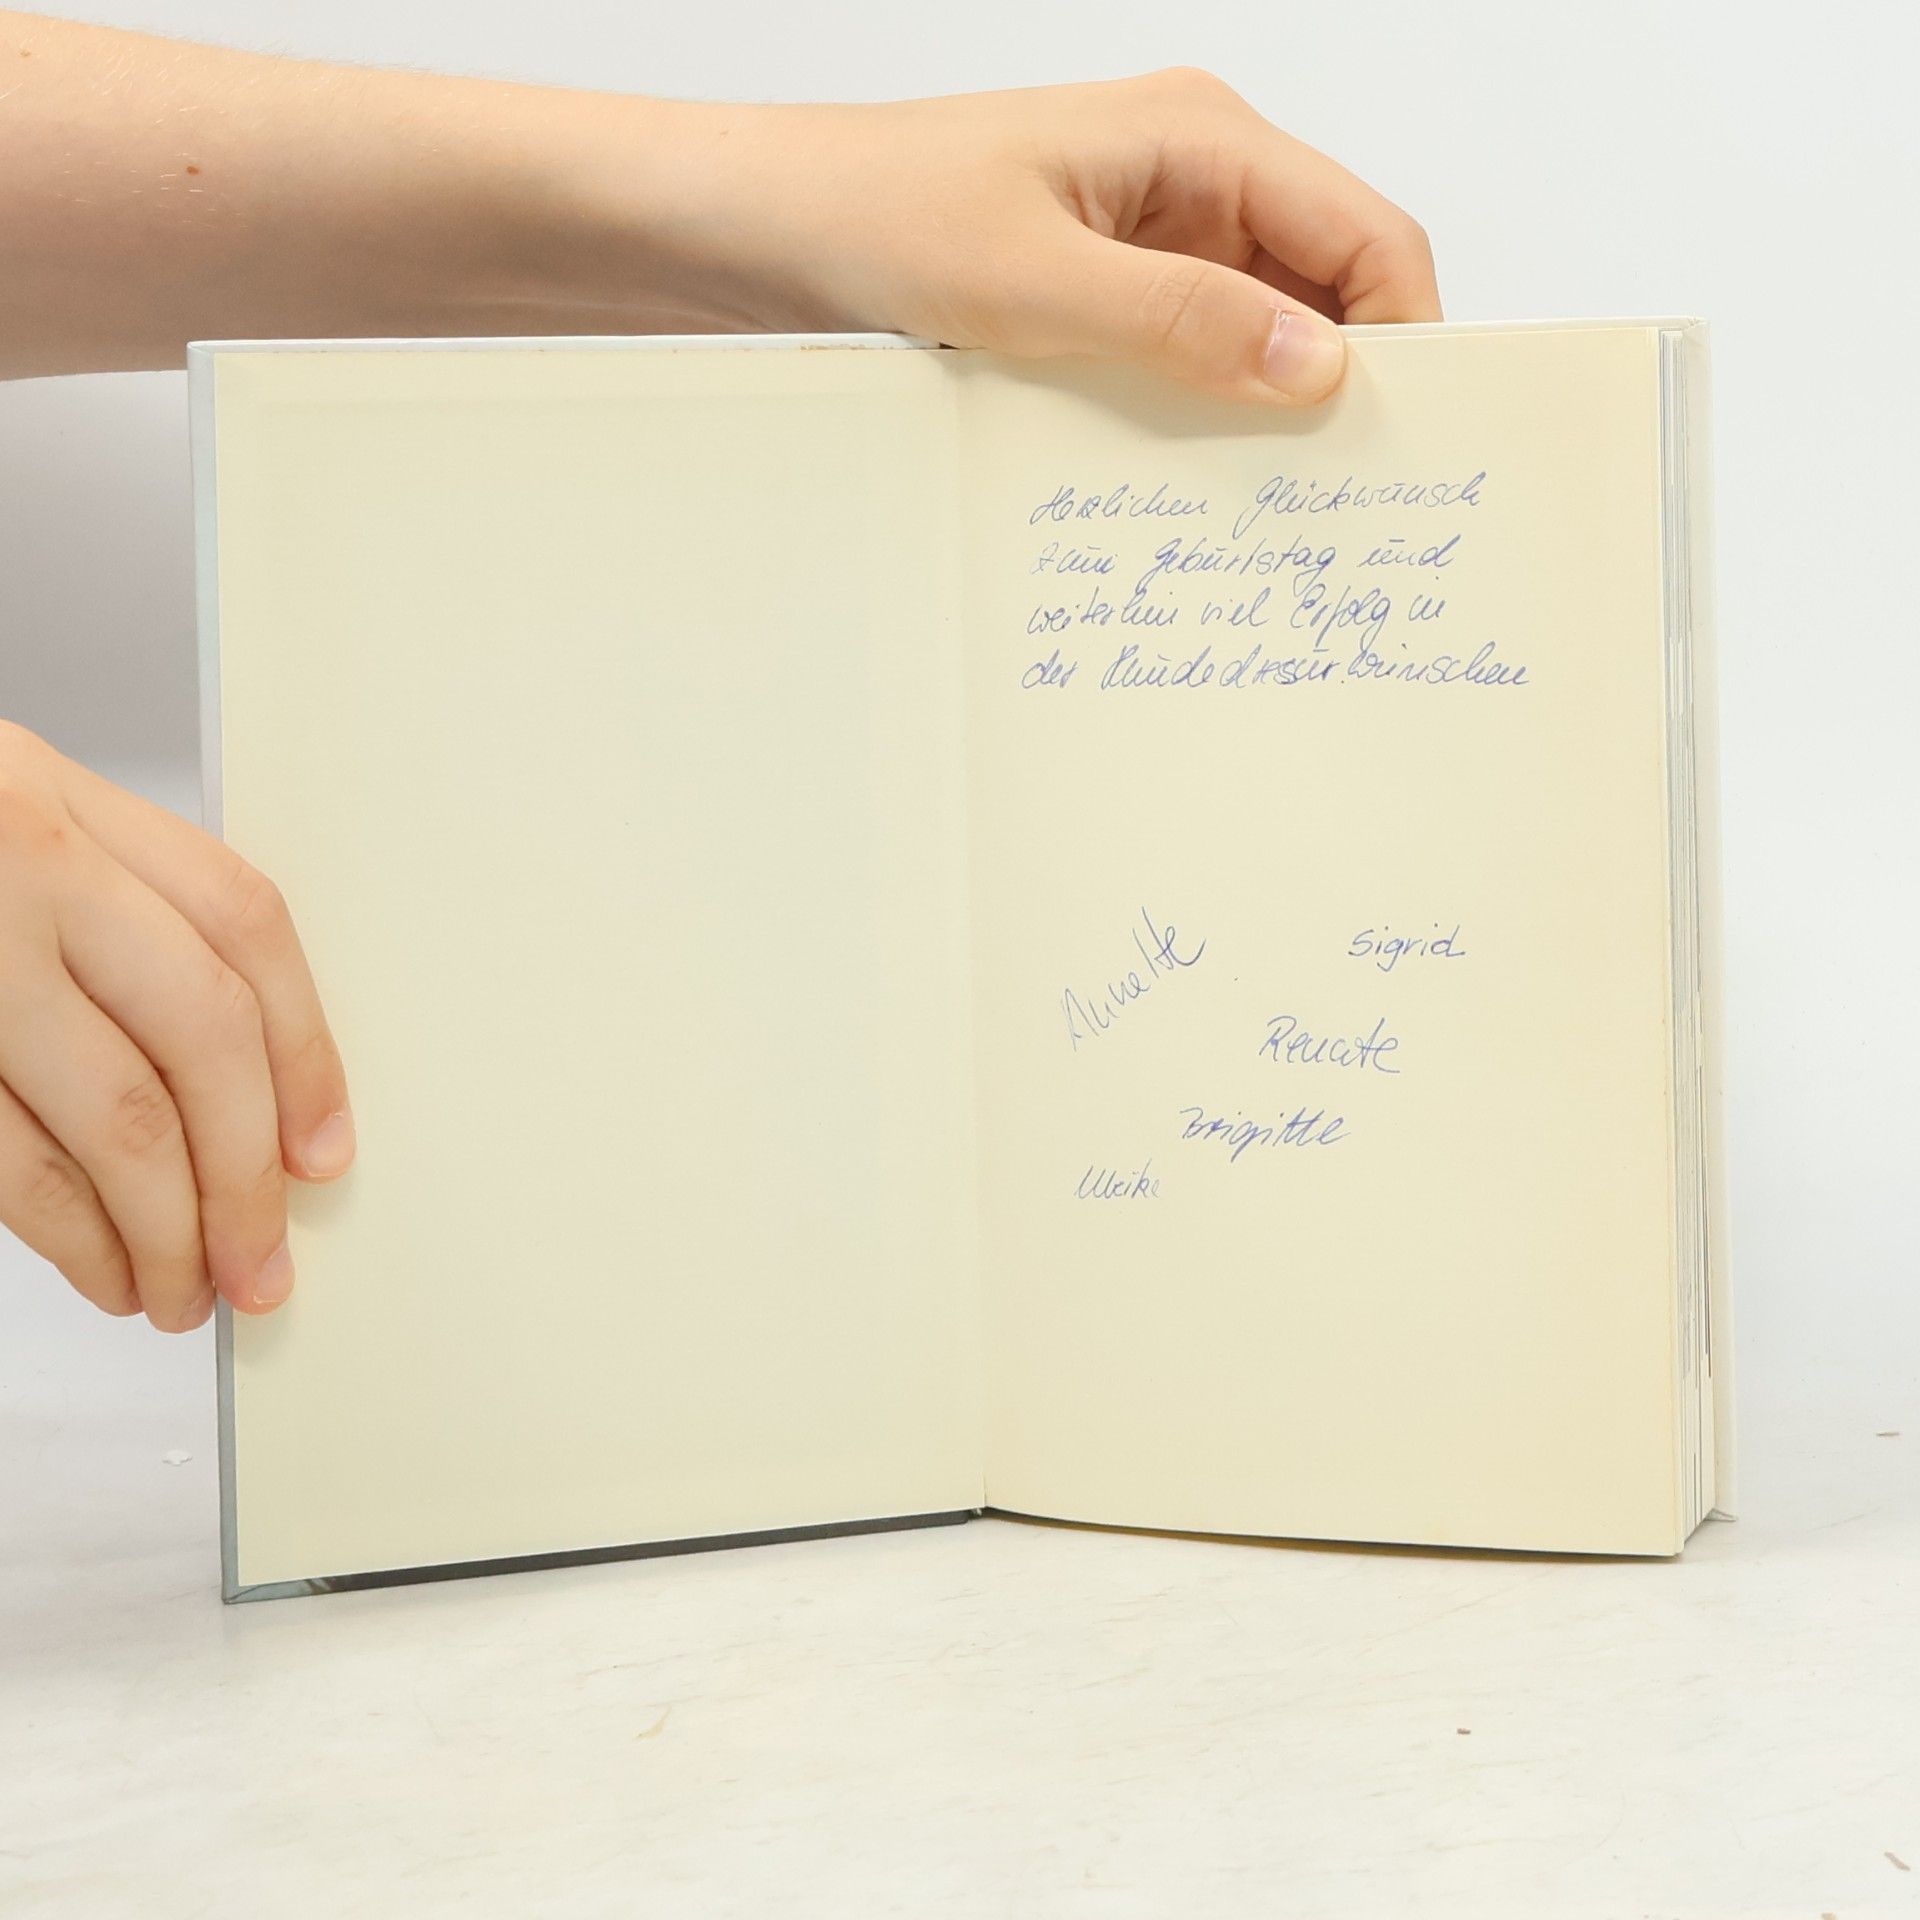 Herzlichen Glückwunsch
zum Geburtstag und
weiterhin viel Erfolg in
der Hundedressur wünschen
Annette
Sigrid
Renate
Brigitte
Ulrike